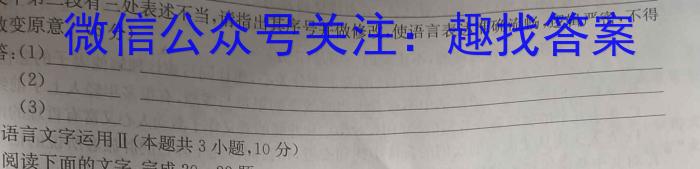 第二段有三处表述不当,请指出其序号并做修改,使语言表达准确流畅,不得
改变原意。
微信公众号关注:趣找答案
答:(1)
(2)
(3)
语言文字运用Ⅱ(本题共3小题,10分)
阅读下面的文字,完成20